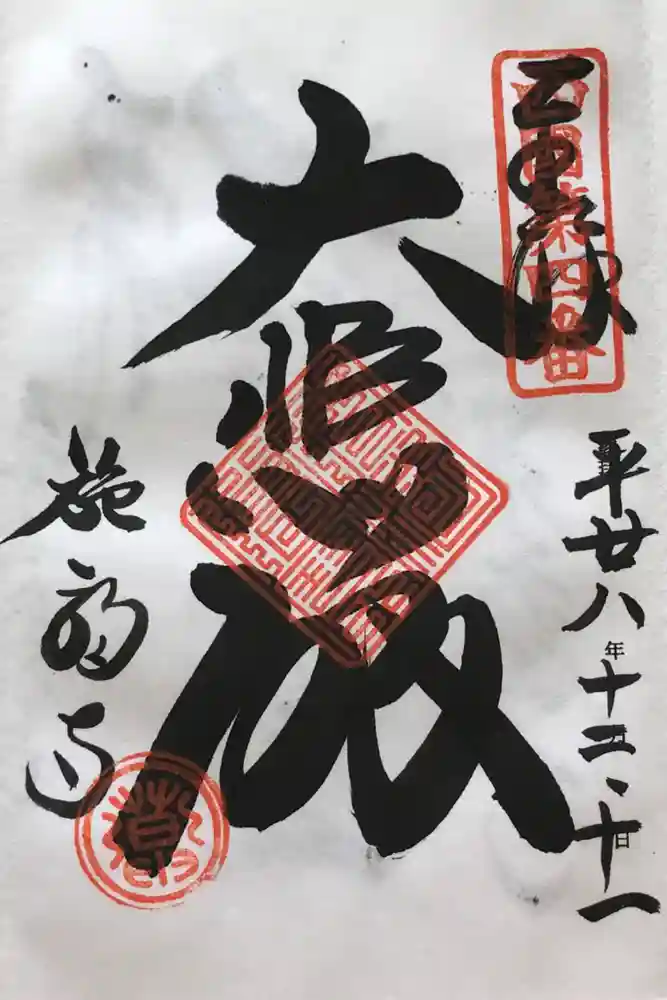 西國第四番
平廿八年十二、十一日
大悲殿
施福寺